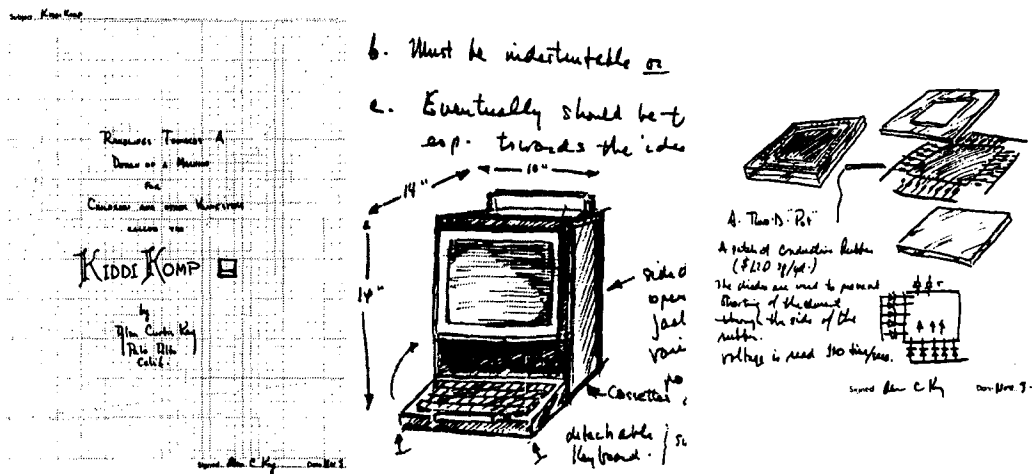 Subject Kiddi Komp
Ramblings Toward A
Dream of a Machine
for
Children and other
called the
KIDDI KOMP
by
Alan Curtis Kay
Palo Alto
Calif.
Signed Alan C. Kay Date Nov. 9
b. Must be indestructable or
c. Eventually should be t
esp. towards the idea
14"
10"
14"
side d
open
jack
Cassettes
detachable
Keyboard.
A. Two-D "Pot"
A patch of Conductive Rubber
The diodes are used to prevent
Shorting of the element
through the side of the
rubber.
Voltage is read
Signed Alan C Kay Date Nov. 9